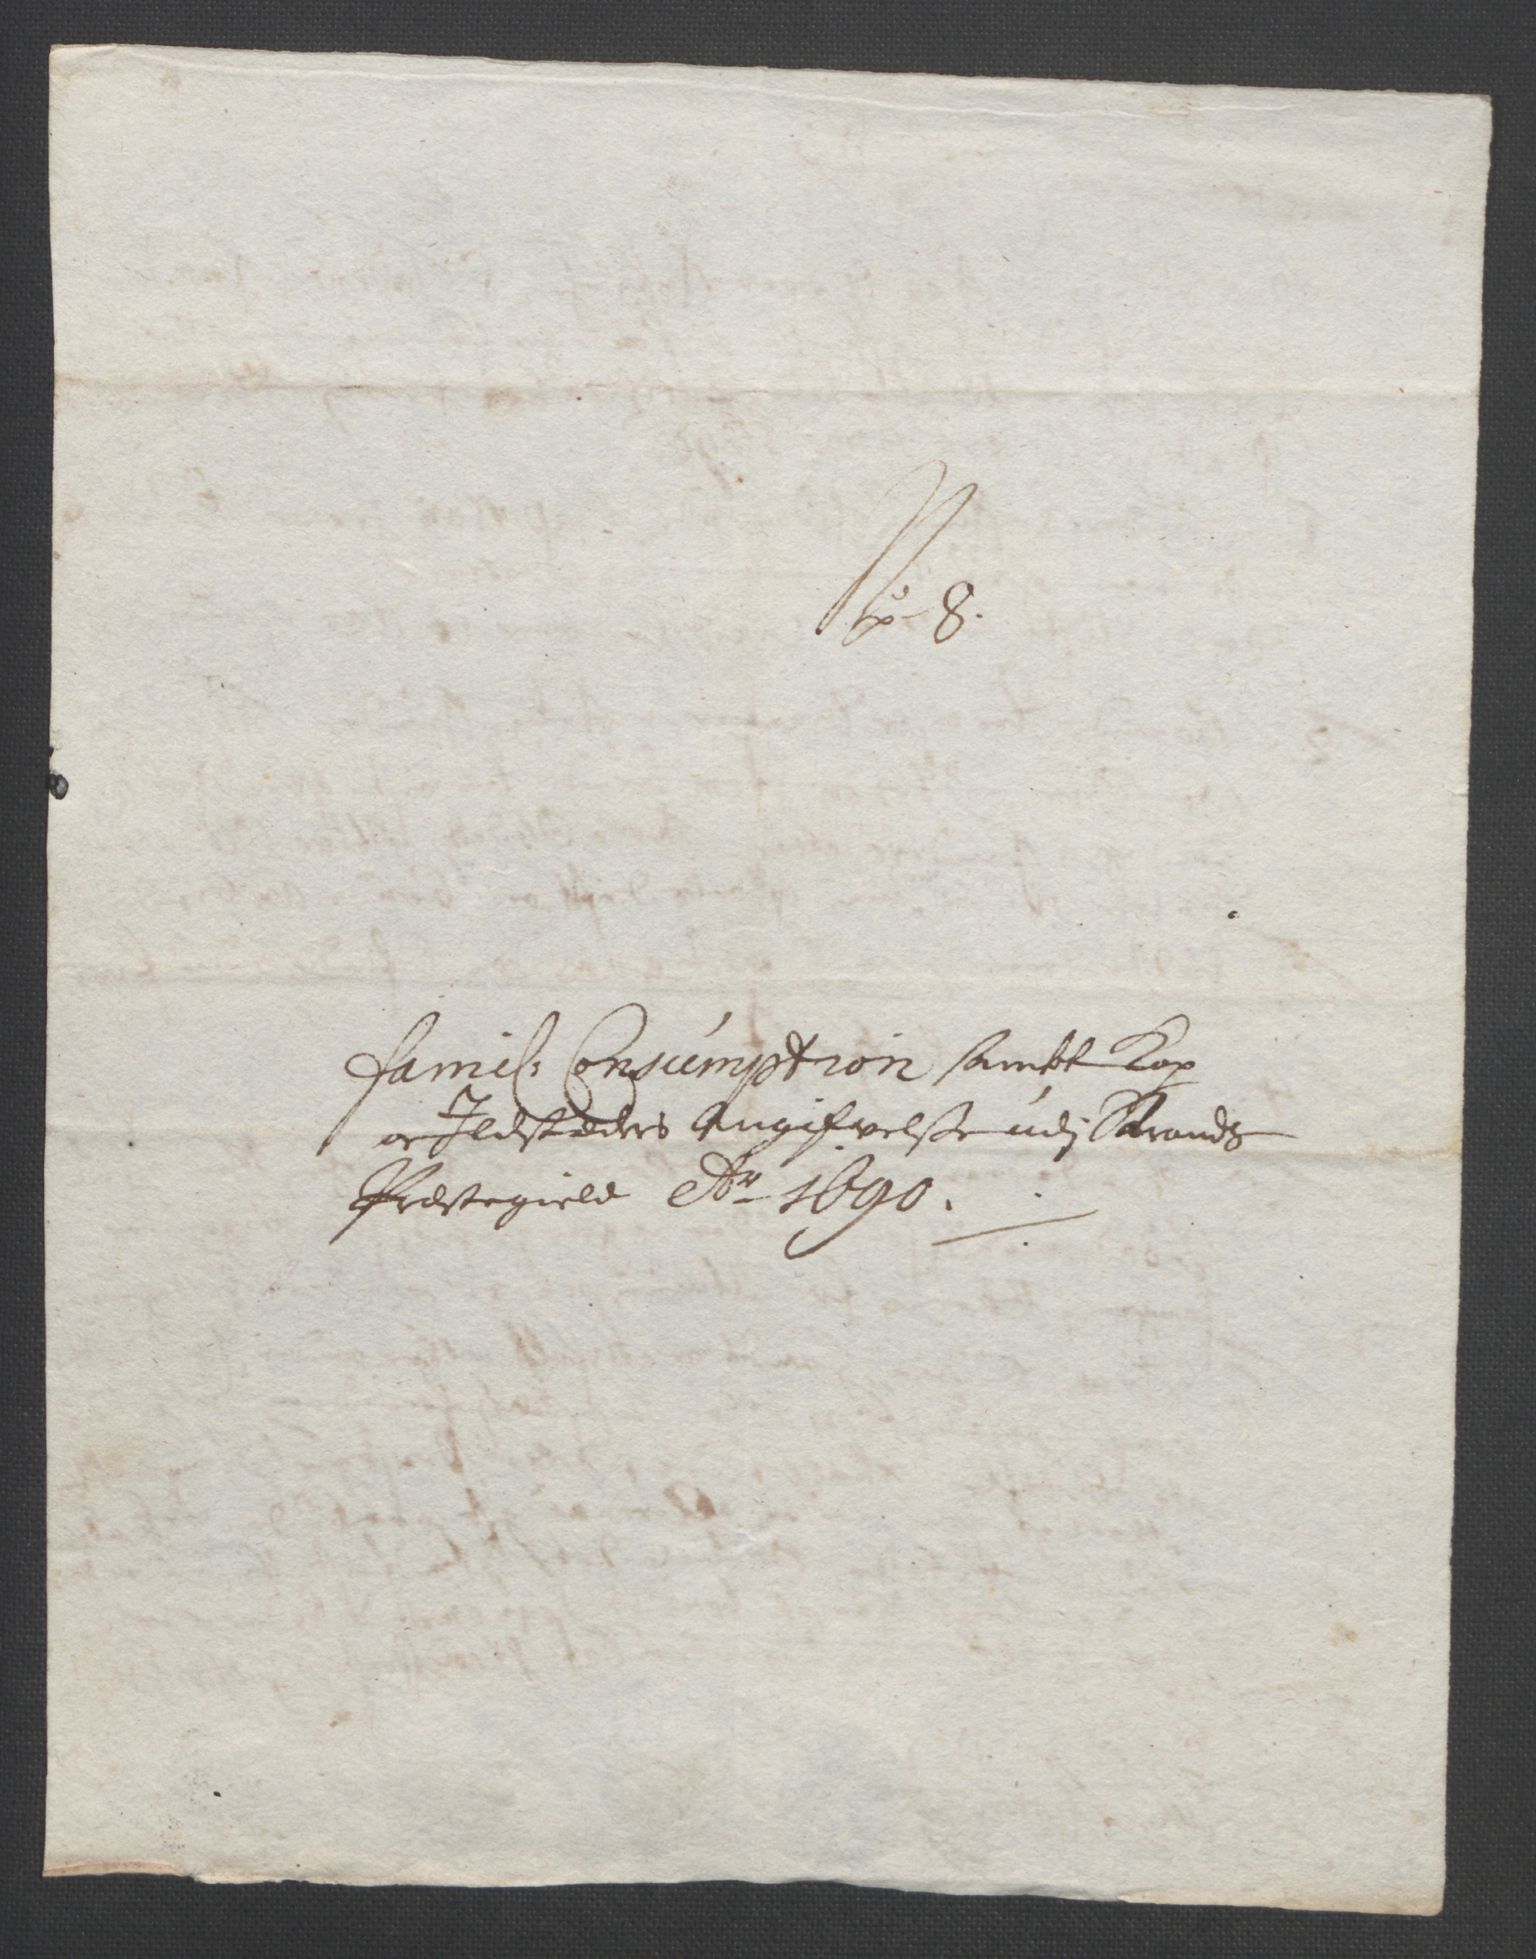 No 8.
Famil: Consumption sambt Kop
oc Ildstæders Angifvelße udj Strands
Præstegield Ao 1690.